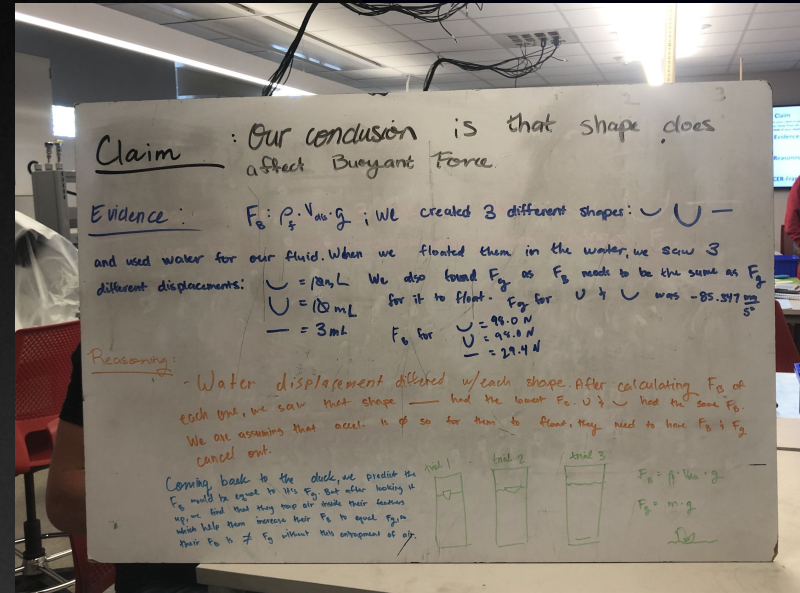 Claim : Our conclusion is that shape does
affect Buoyant Force.
Evidence : F_B : ρ_f · V_dis · g ; We created 3 different shapes: ⌣ U —
and used water for our fluid. When we floated them in the water, we saw 3
different displacements: ⌣ = 10 mL We also found F_g as F_B needs to be the same as F_g
U = 10 mL for it to float. F_g for U & ⌣ was -85.347 mg/s²
— = 3 mL F_B for ⌣ = 98.0 N
U = 98.0 N
— = 29.4 N
Reasoning:
- Water displacement differed w/each shape. After calculating F_B of
each one, we saw that shape — had the lowest F_B. U & ⌣ had the same F_B.
We are assuming that accel. is ø so for them to float, they need to have F_B & F_g
cancel out.
Coming back to the duck, we predict the
F_B would be equal to its F_g. But after looking it
up, we find that they trap air inside their feathers
which help them increase their F_B to equal F_g, as
their F_B is ≠ F_g without this entrapment of air.
trial 1 trial 2 trial 3
F_B = ρ · V_dis · g
F_g = m · g
Claim
Evidence
Reasoning